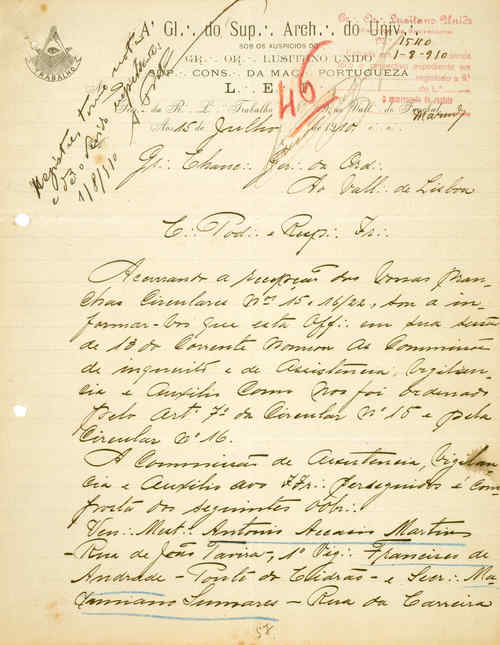 A∴ Gl∴ do Sup∴ Arch∴ do Univ∴
SOB OS AUSPICIOS DO
GR∴ OR∴ LUSITANO UNIDO
SUP∴ CONS∴ DA MAÇ∴ PORTUGUEZA
L∴ E∴
TRABALHO
Gr∴ Or∴ Lusitano Unido
15110
1-8-910
46
da R∴ L∴ Trabalho Vall∴ do Funchal
Ao 15 de Julho de 1910
1/8/910
Gr∴ Chanc∴ Ger∴ da Ord∴
Ao Vall∴ de Lisboa
C∴ Pod∴ e Resp∴ Ir∴
Accusando a recepção das Vossas Pran-
chas Circulares Nos 15 e 16/22, sou a in-
formar-vos que esta Off∴ em sua sessão
de 13 do corrente nomeou as Commissões
de inquerito e de Assistencia, Vigilan-
cia e Auxilio como nos foi ordenado
pelo Art. 7º da Circular Nº 15 e pela
Circular Nº 16.
A Commissão de Assistencia, Vigilan-
cia e Auxilio aos IIr∴ perseguidos é com-
posta dos seguintes Obr∴
Ven∴ Mest∴ Antonio Accacio Martins
-Rua de João Tavira-, 1º Vig∴ Francisco de
Andrade - Ponte do Cidrão - e Secr∴ Ma-
Tavares - Rua da Carreira
58